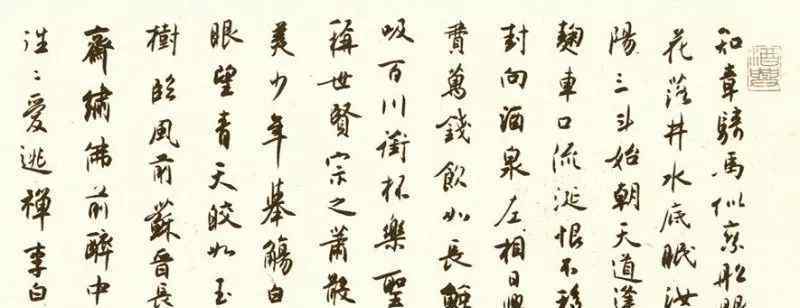 知章騎馬似乘船眼
花落井水底眠汝
陽三斗始朝天道逢
麴車口流涎恨不移
封向酒泉左相日興
費萬錢飲如長鯨
吸百川銜杯樂聖
稱世賢宗之蕭散
美少年舉觴白
眼望青天皎如玉
樹臨風前蘇晉長
齋繡佛前醉中
往〻愛逃禪李白